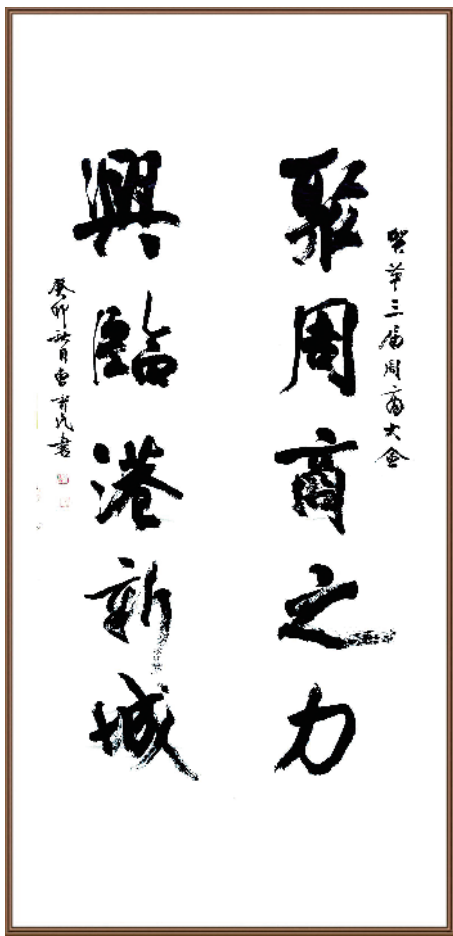 贺第三届周商大会
聚周商之力
興臨港新城
癸卯秋月曹書